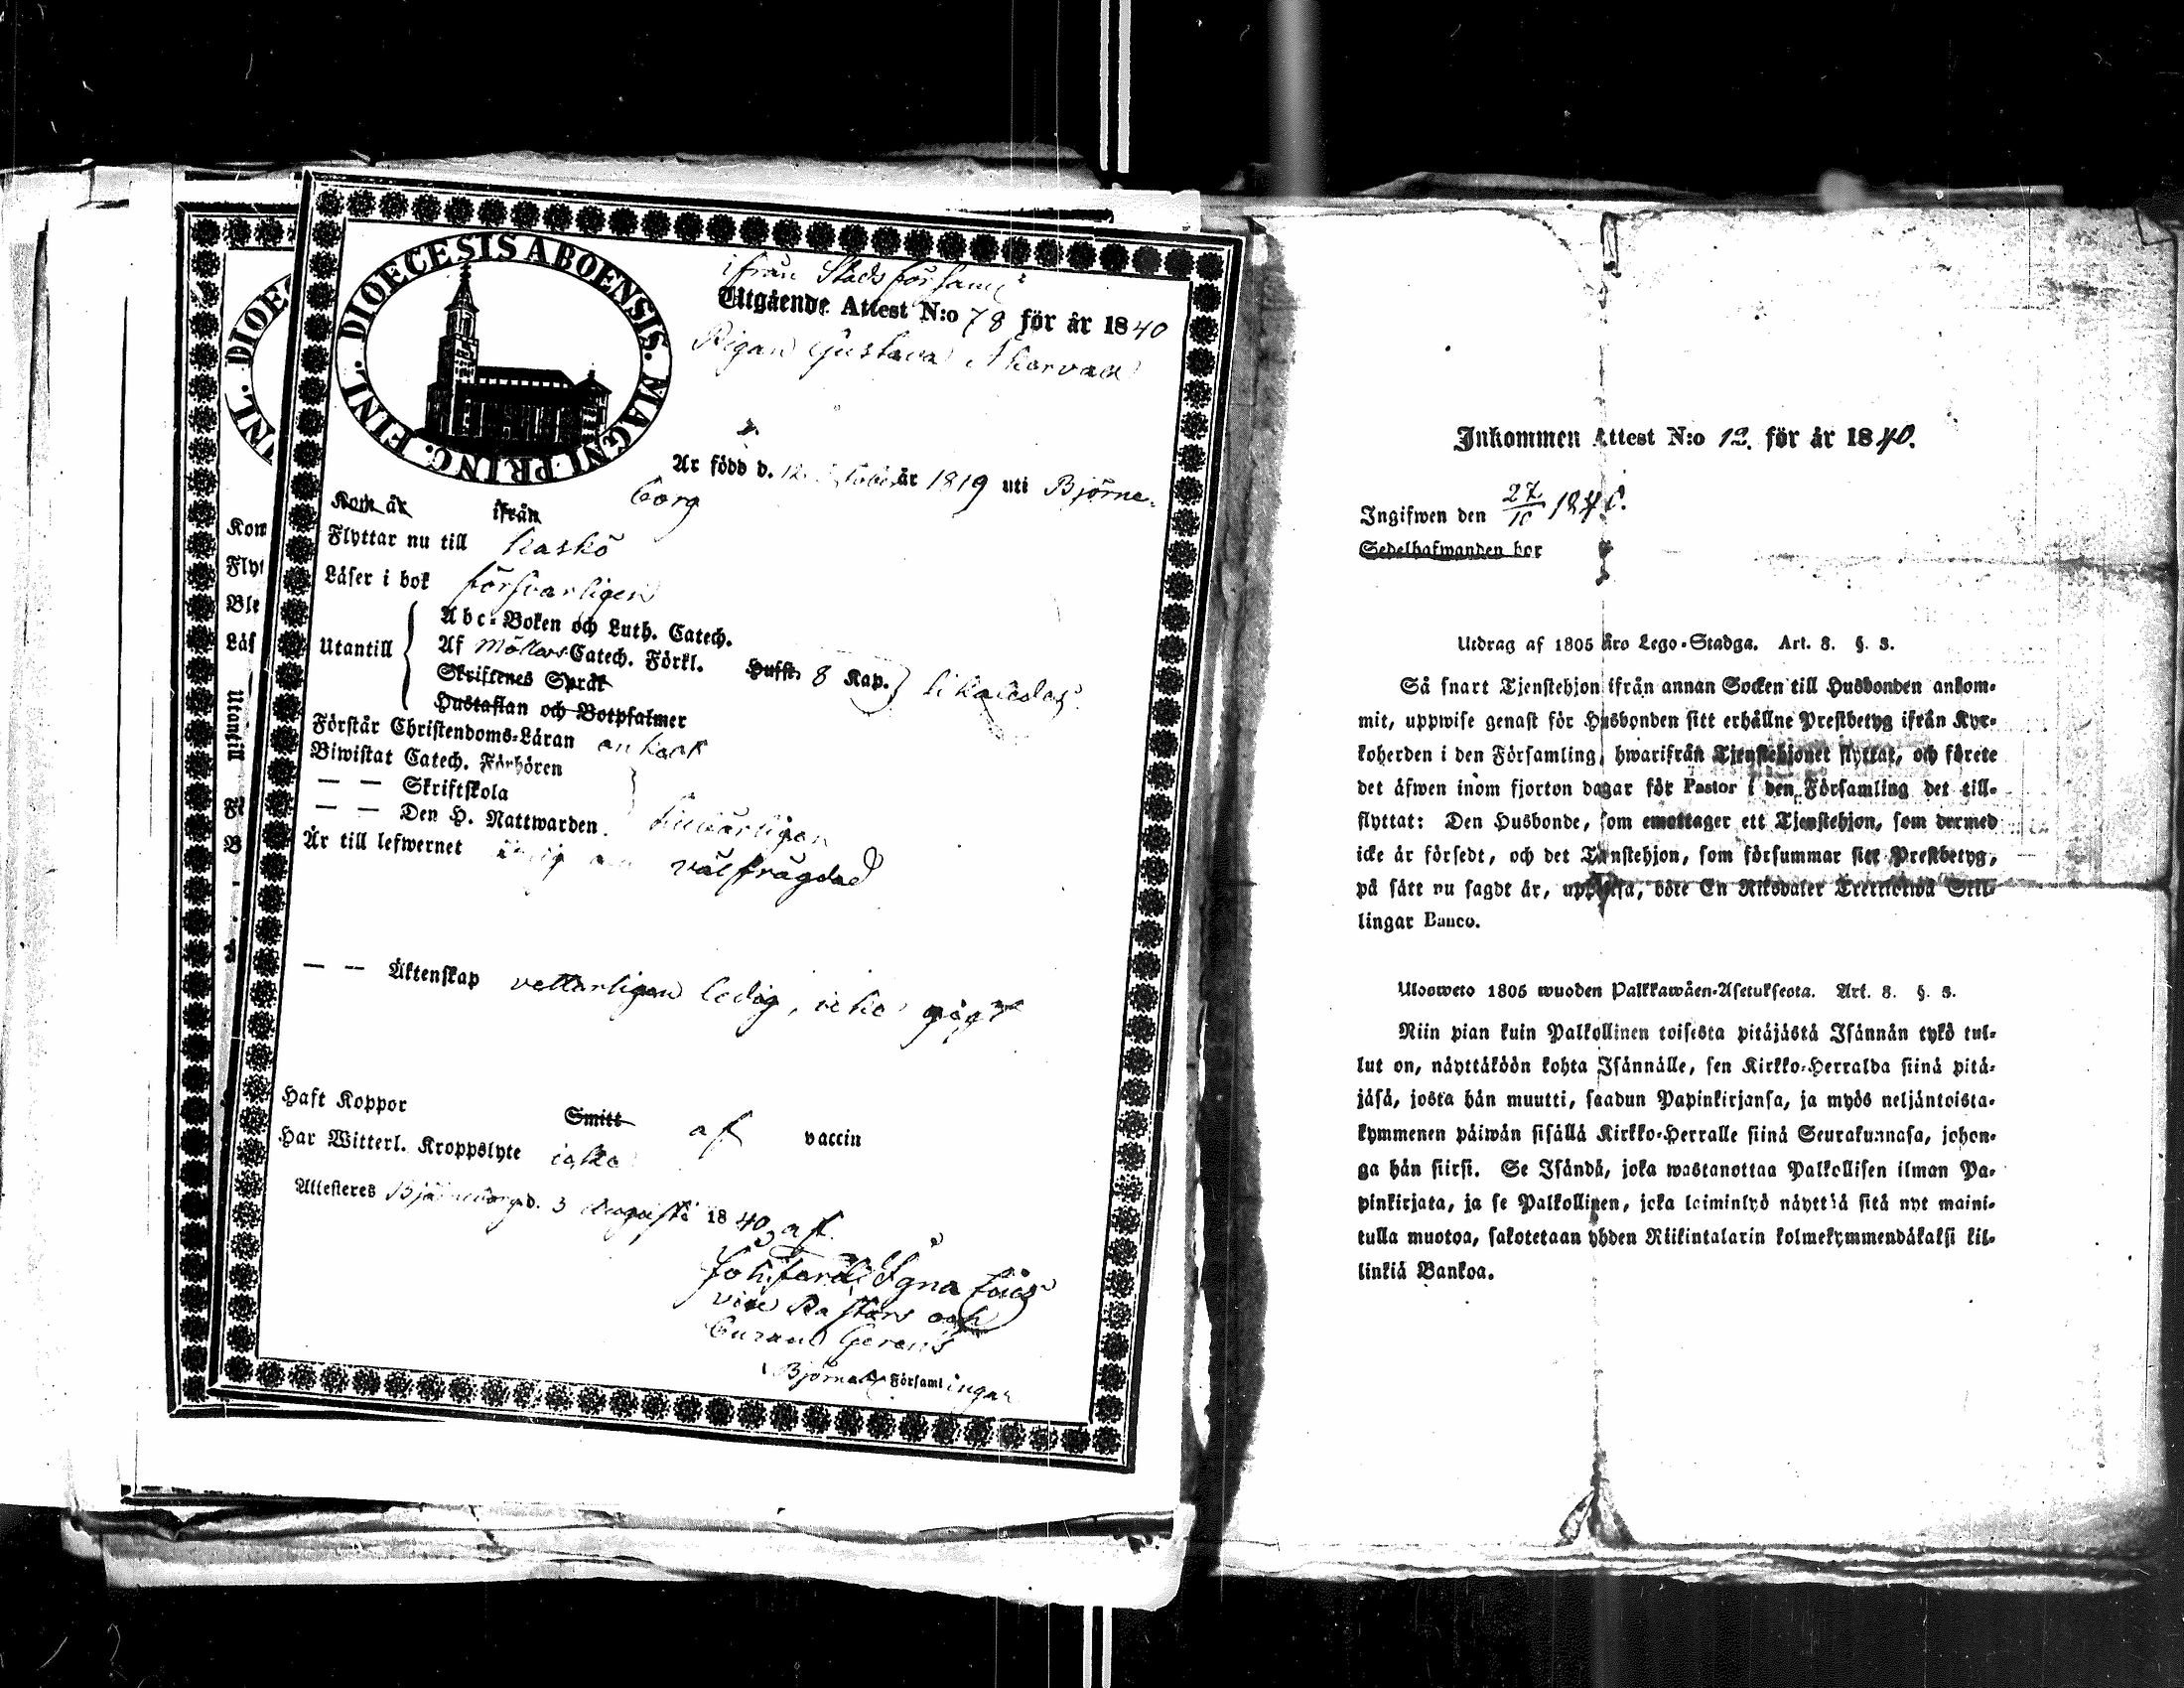 DIOECESIS ABOENSIS. MAGNI PRING. FINL.
ifrån Stads församl:
Utgående Attest N:o 78 för år 1840
Pigan Gustava
Är född d. 12 år 1819 uti Björne-
borg
Kom år ifrån
Flyttar nu till Kaskö
Läser i bok försvarligen
Utantill
Abc-Boken och Luth. Catech.
Af Möllers Catech. Förkl. Hufst. 8 Kap. likaledes
Skriftenes Språk
Hustaflan och Botpsalmer
Förstår Christendoms-Läran enkelt
Biwistat Catech. Förhören
— — Skriftskola
— — Den H. Nattwarden.
Är till lefwernet välfrägdad
— — Äktenskap vetterligen ledig, icke
Haft Koppor Smitt af vaccin
Har Witterl. Kroppslyte icke
Attesteres Björneborg d. 3 Augusti 1840, af
Joh. Ferd. Ignatius
vice Pastors och
Curam Gerens
i Björneb: Församlingar
DIOE
INL.
Kom
Flyt
Ble
Läs
Utantill
Inkommen Attest N:o 12. för år 1840.
Ingifwen den 27/10 1840.
Sedelhafwanden bor
Utdrag af 1805 års Lego-Stadga. Art. 8. §. 3.
Så snart Tjenstehjon ifrån annan Socken till Husbonden ankom-
mit, uppwise genast för Husbonden sitt erhållne Prestbetyg ifrån Kyr-
koherden i den Församling, hwarifrån Tjenstehjonet flyttat, och förete
det äfwen inom fjorton dagar för Pastor i den Församling det till-
flyttat: Den Husbonde, som emottager ett Tjenstehjon, som dermed
icke är försedt, och det Tjenstehjon, som försummar sitt Prestbetyg,
på sätt nu sagdt är, uppwisa, böte En Riksdaler Trettiotwå Skil-
lingar Banco.
Ulosweto 1805 wuoden Palkkawäen-Asetuksesta. Art. 8. §. 3.
Niin pian kuin Palkollinen toisesta pitäjästä Isännän tykö tul-
lut on, näyttäköön kohta Isännälle, sen Kirkko-Herralda siinä pitä-
jäsä, josta hän muutti, saadun Papinkirjansa, ja myös neljäntoista-
kymmenen päiwän sisällä Kirkko-Herralle siinä Seurakunnasa, johon-
ga hän siirsi. Se Isändä, joka wastanottaa Palkollisen ilman Pa-
pinkirjata, ja se Palkollinen, joka laiminlyö näyttää sitä nyt maini-
tulla muotoa, sakotetaan yhden Riikintalarin kolmekymmendäkaksi kil-
linkiä Bankoa.